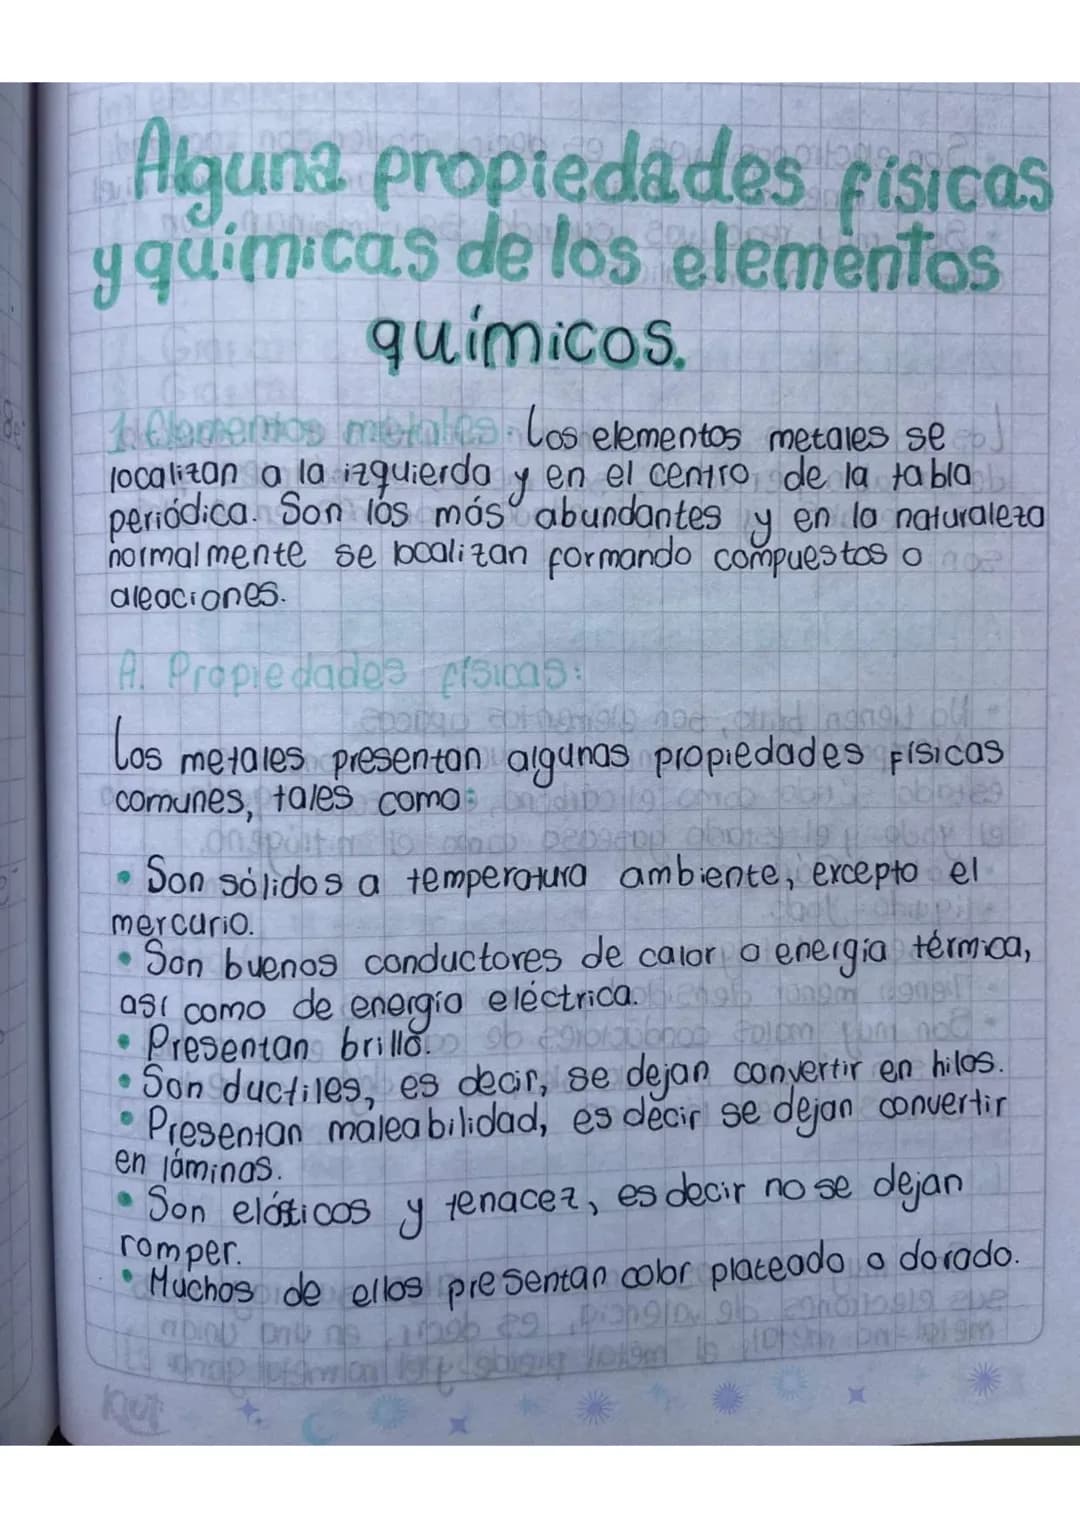 Alguna propiedades físicas
y químicas de los elementos
químicos.
1. Elementos metales. Los elementos metales se
localizan a la izquierda y en el centro de la tabla
periódica. Son los más abundantes y en la naturaleza
normalmente se localizan formando compuestos o
aleaciones.
A. Propiedades físicas:
Los metales presentan algunas propiedades físicas
comunes, tales como:
• Son sólidos a temperatura ambiente, excepto el
mercurio.
• Son buenos conductores de calor o energía térmica,
así como de energía eléctrica.
• Presentan brillo.
• Son ductiles, es decir, se dejan convertir en hilos.
• Presentan maleabilidad, es decir se dejan convertir
en láminas.
• Son elásticos y tenacez, es decir no se dejan
romper.
• Muchos de ellos presentan color plateado o dorado.